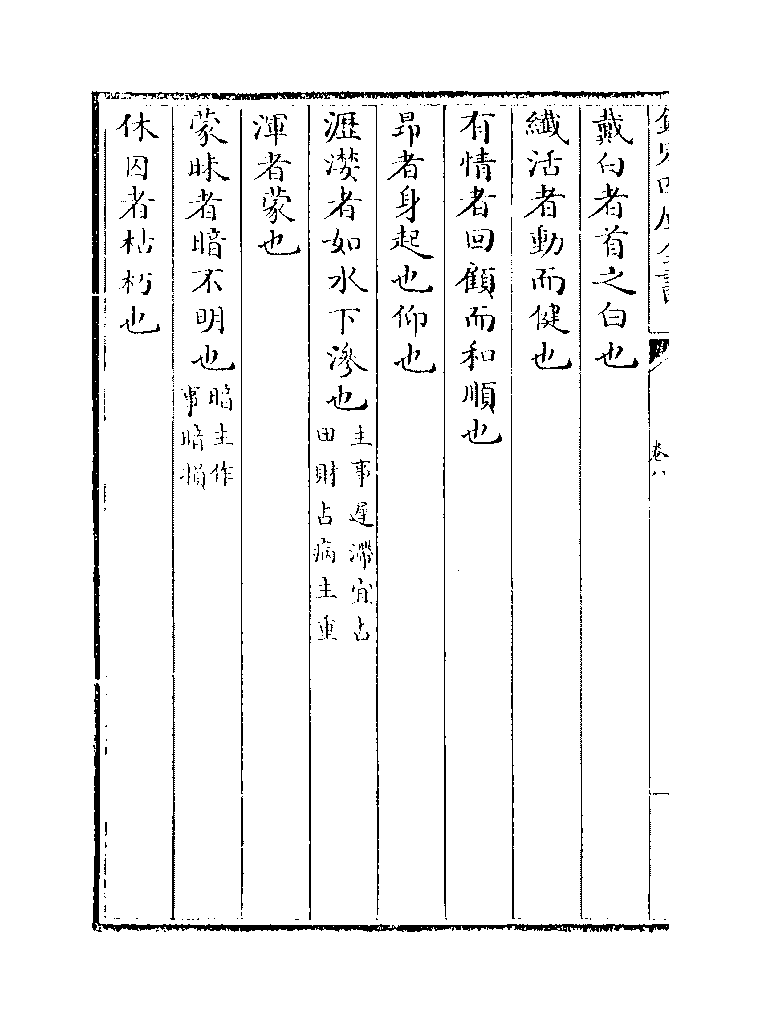 欽定四庫全書
卷八
戴白者首之白也
纖活者動而健也
有情者回顧而和順也
昂者身起也仰也
瀝滐者如水下滲也主事遲滯宜占田財占病主重
渾者蒙也
蒙昧者暗不明也暗主作事暗損
休囚者枯朽也